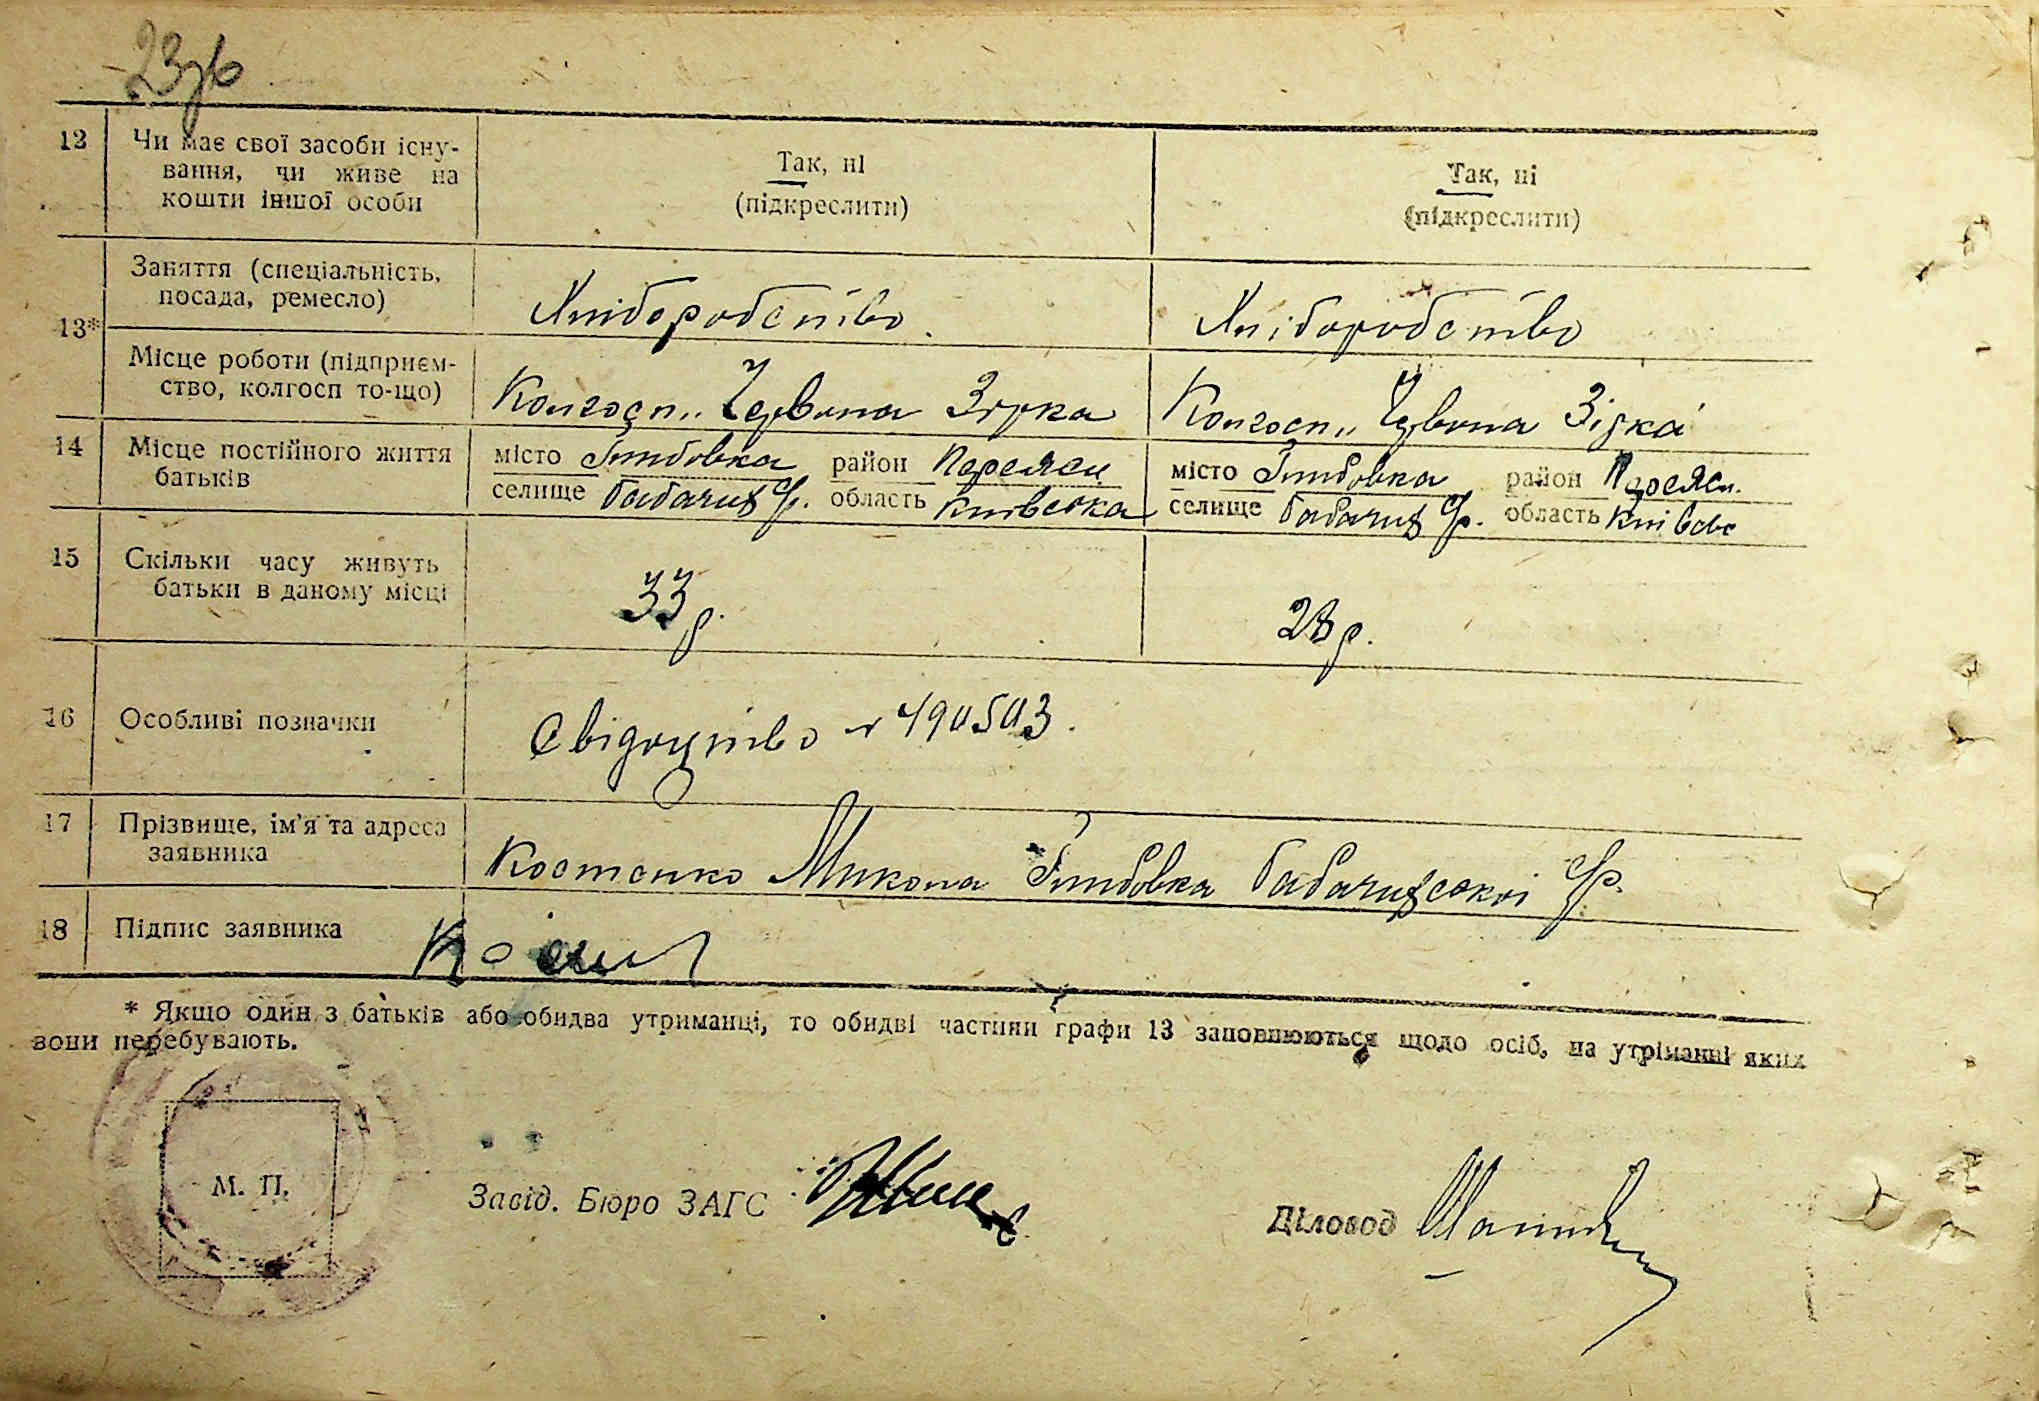 23зв
12 Чи має свої засоби існу- Так, ні Так, ні
вання, чи живе на (підкреслити) (підкреслити)
кошти іншої особи
13* Заняття (спеціальність, Хліборобство Хліборобство
посада, ремесло)
Місце роботи (підприєм- Колгосп „ Червона Зірка Колгосп „ Червона Зірка
ство, колгосп то-що)
14 Місце постійного життя місто район Переясл місто район Переясл.
батьків селище с/р. область Київська селище с/р. область Київськ
15 Скільки часу живуть 33 р. 28 р.
батьки в даному місці
16 Особливі позначки Свідоцтво № 490503.
17 Прізвище, ім'я та адреса Костенко Микола с/р.
заявника
18 Підпис заявника
* Якщо один з батьків або обидва утриманці, то обидві частини графи 13 заповнюються щодо осіб, на утріманні яких
вони перебувають.
М. П. Завід. Бюро ЗАГС Діловод